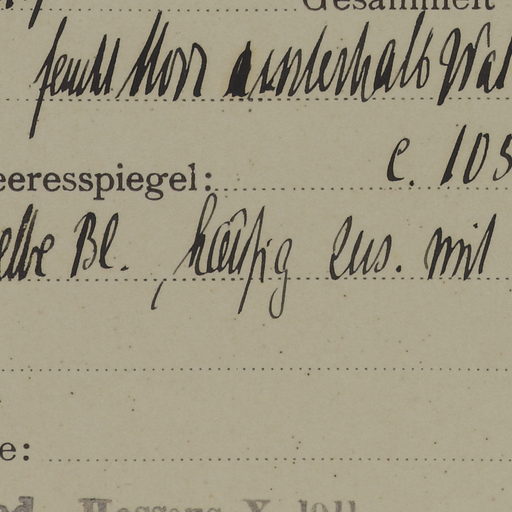 Gesammelt
feucht Moor unterhalb Wal
eeresspiegel: c. 105
elbe Bl., häufig zus. mit
e: